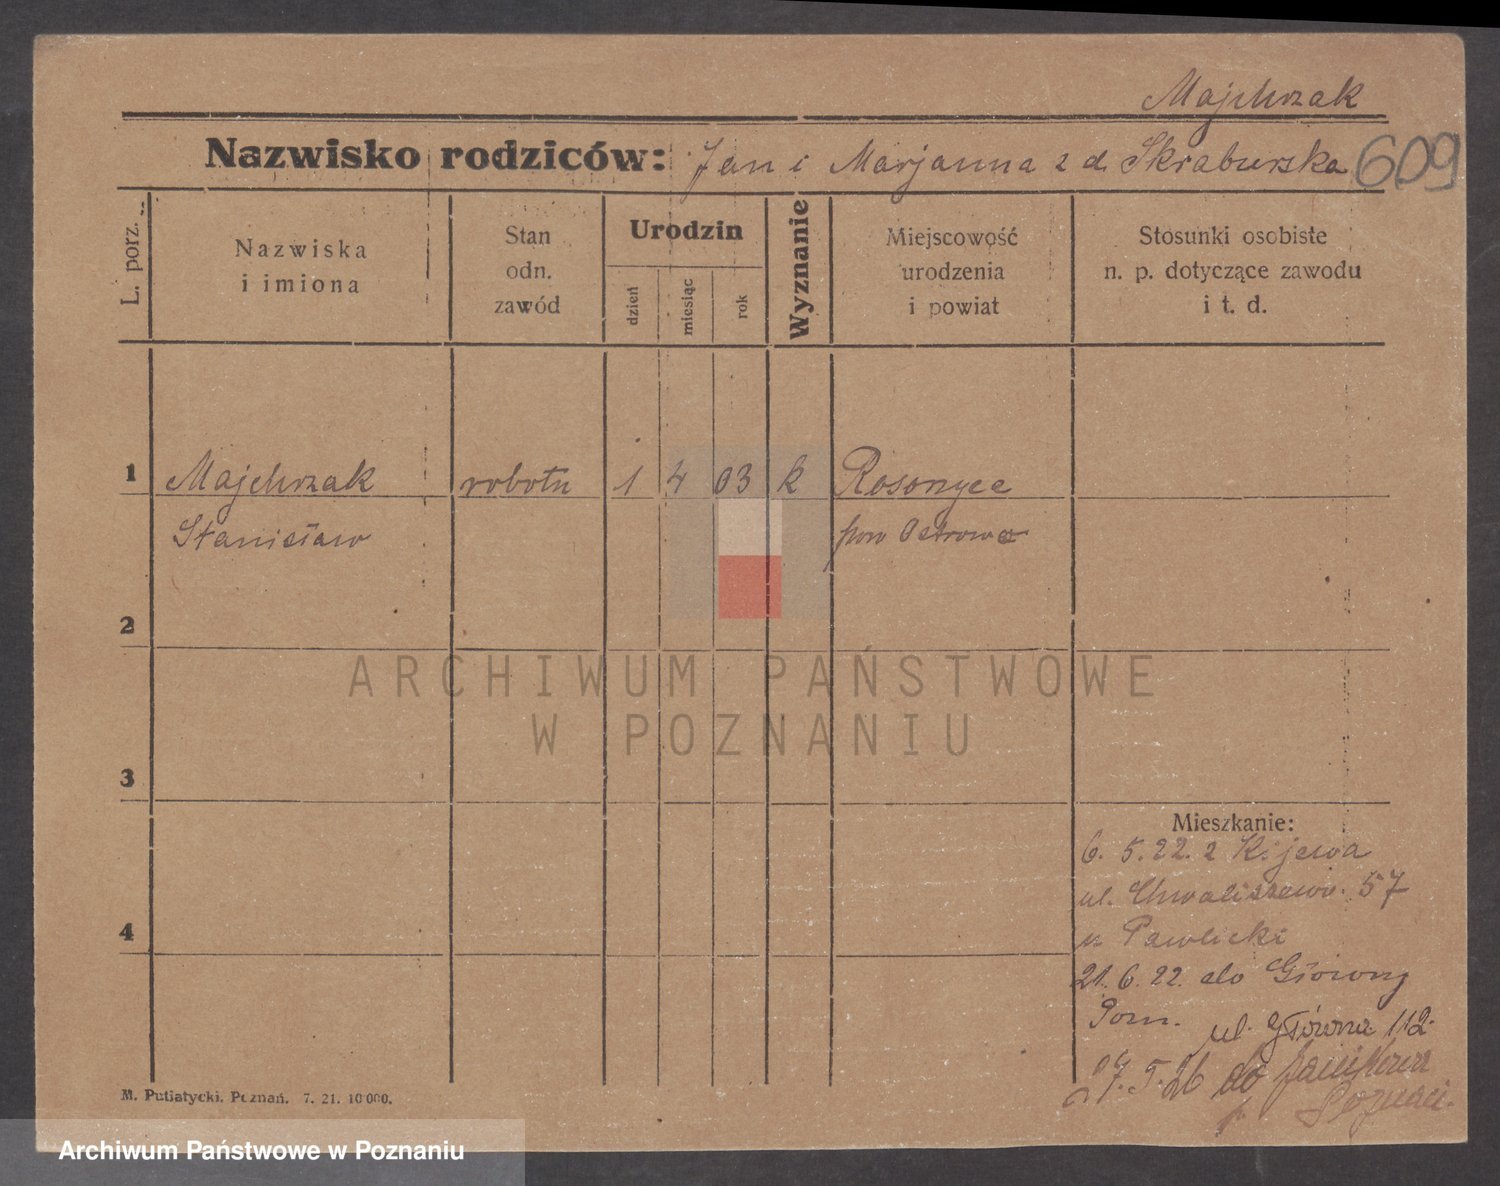 Majchrzak
Nazwisko rodziców: Jan i Marjanna z d. Skraburska 609
L. porz.
Nazwiska
i imiona
Stan
odn.
zawód
Urodzin
dzień
miesiąc
rok
Wyznanie
Miejscowość
urodzenia
i powiat
Stosunki osobiste
n. p. dotyczące zawodu
i t. d.
1 Majchrzak robotn 1 4 03 k
Stanisław pow Ostrowo
2
3
4
Mieszkanie:
6. 5. 22. z Kijewa
ul. Chwaliszewo. 57
u Pawlicki
21. 6. 22. do Główny
Pozn. ul. Główna 112.
27. 5. 26 do Janikowa
p. Poznań.
M. Putiatycki. Poznań. 7. 21. 10 000.
ARCHIWUM PAŃSTWOWE
W POZNANIU
Archiwum Państwowe w Poznaniu